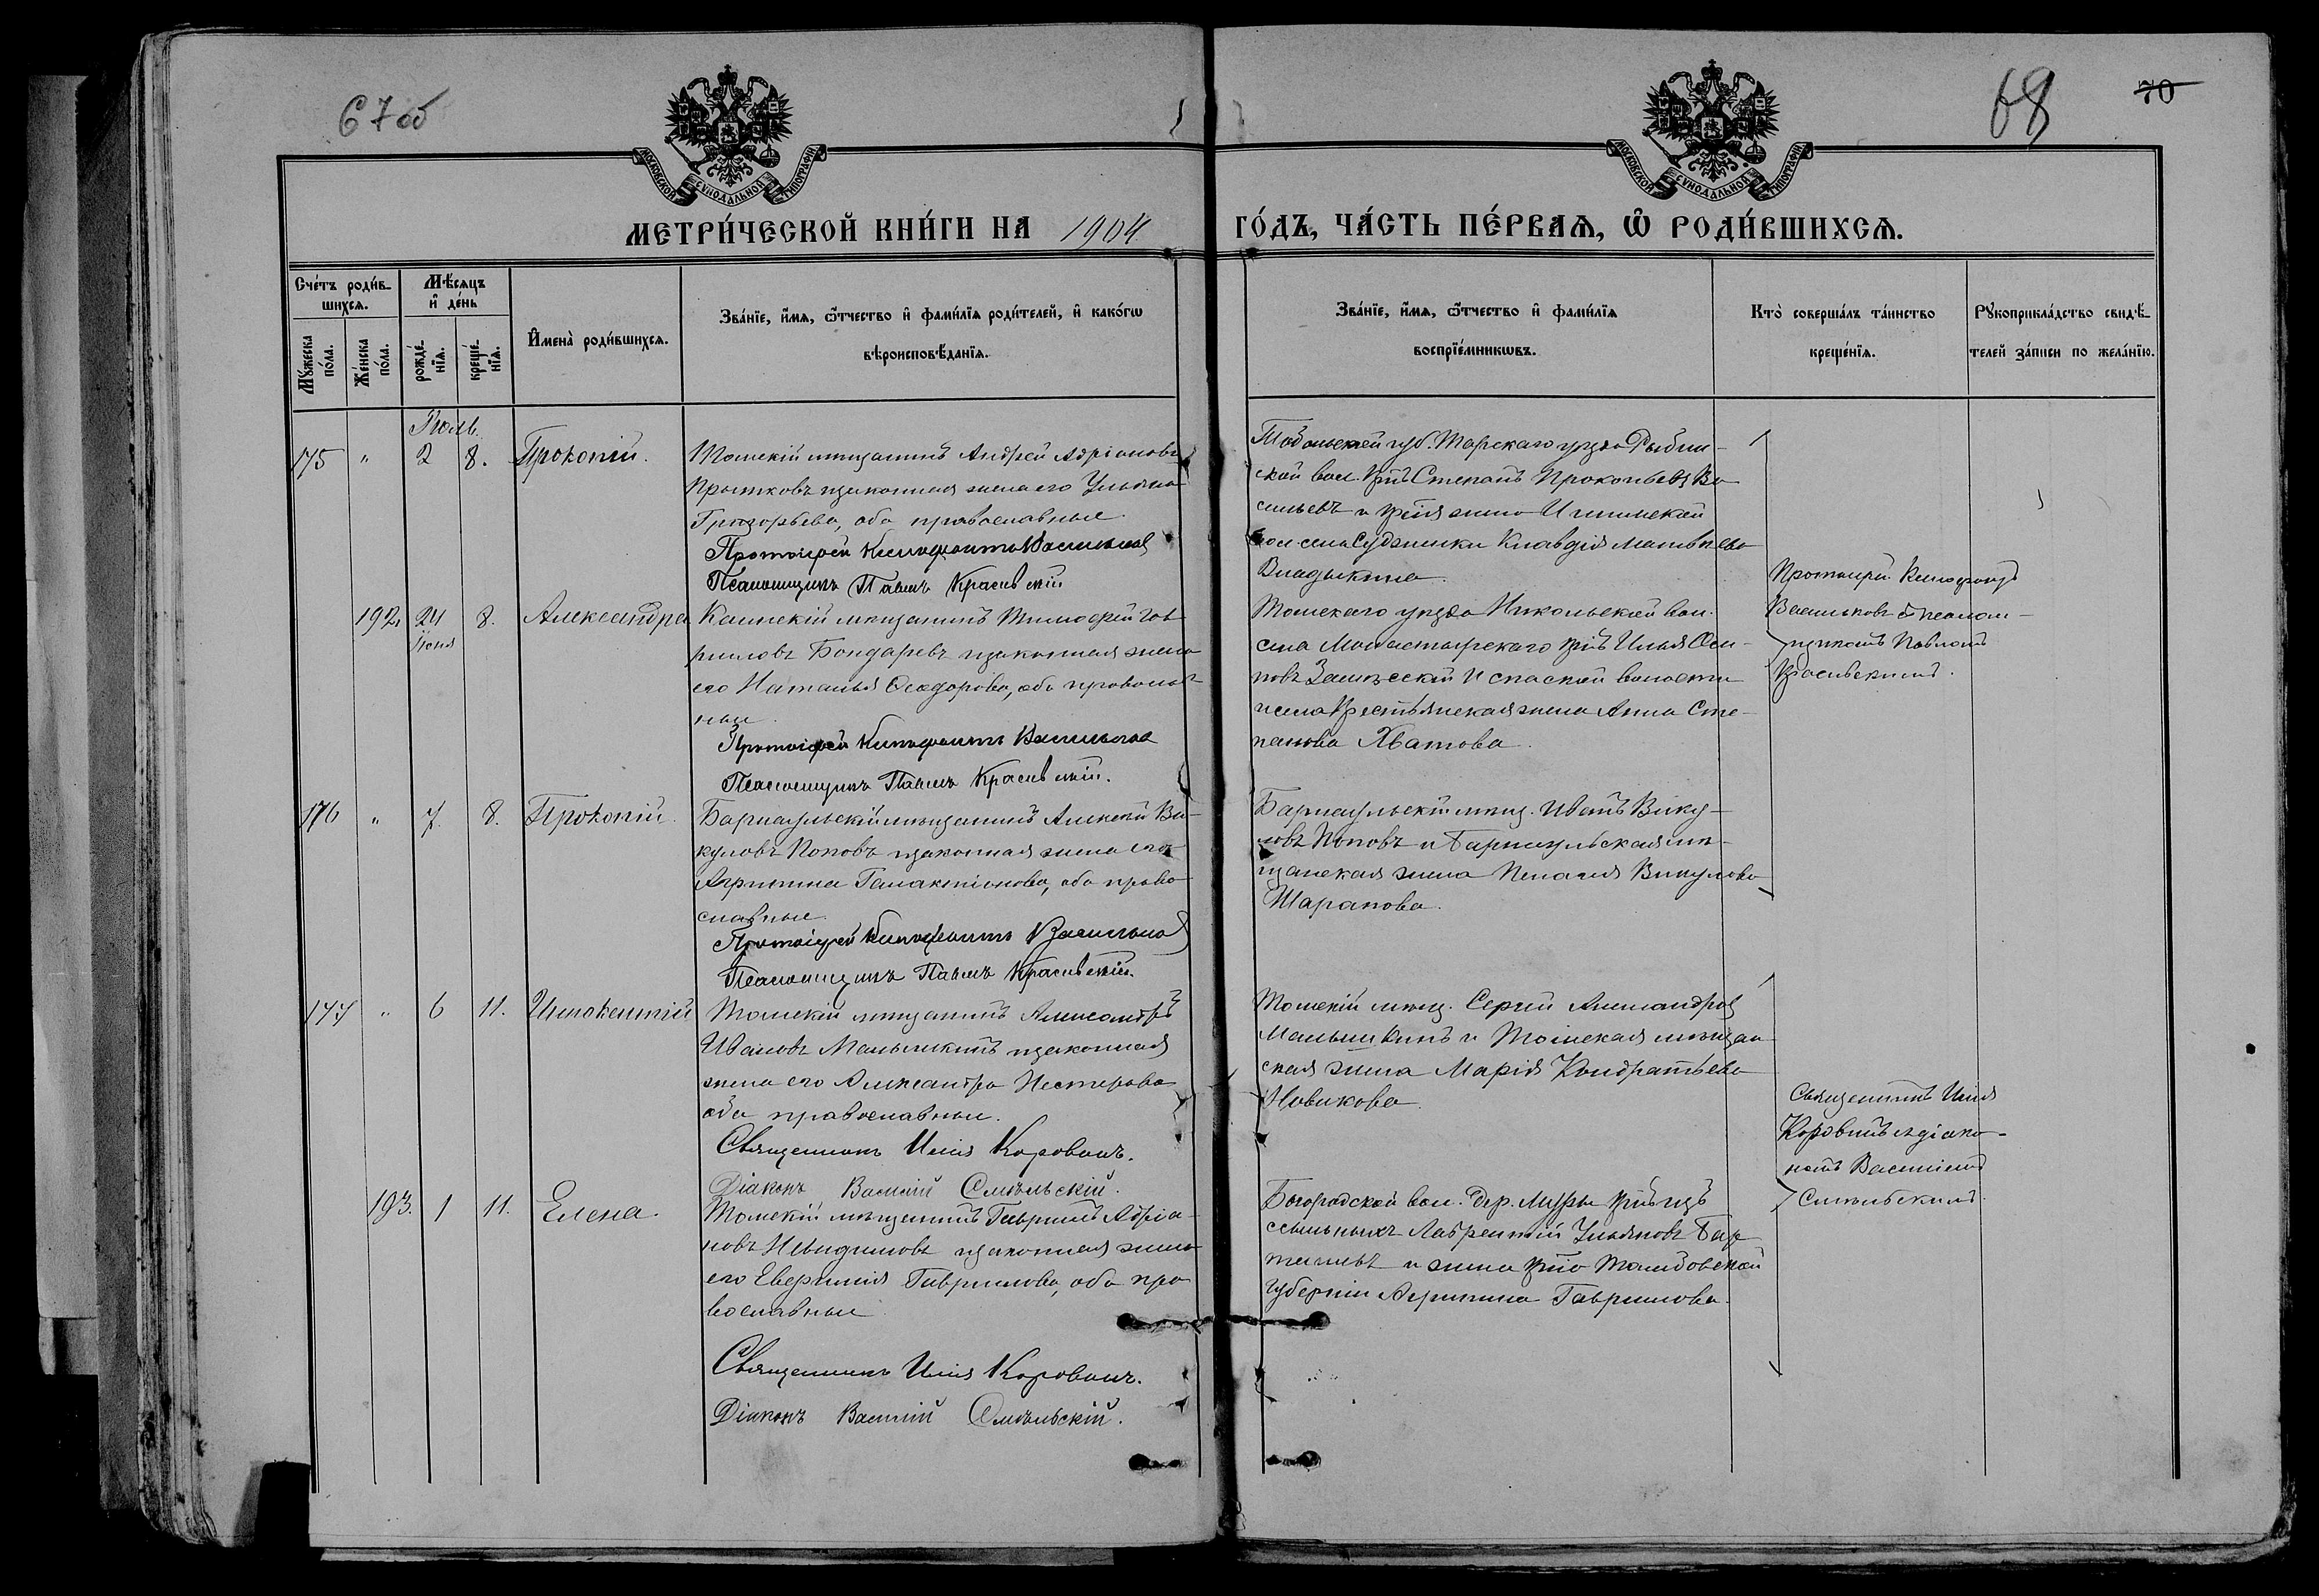 67 об
68
70
МОСКОВСКОЙ СУНОДАЛЬНОЙ ТИПОГРАФІИ
МОСКОВСКОЙ СУНОДАЛЬНОЙ ТИПОГРАФІИ
МЕТРИ́ЧЕСКОЙ КНИ́ГИ НА 1904 ГО́ДЪ, ЧА́СТЬ ПЕ́РВАѦ, Ѡ҆ РОДИ́ВШИХСѦ.
Сче́тъ роди́в-
шихсѧ.
Мꙋ́жеска по́ла.
Же́нска по́ла.
Мѣ́сяцъ и҆ де́нь
рожде́-нїѧ.
креще́-нїѧ.
И҆мена̀ роди́вшихсѧ.
Зва́нїе, и҆́мѧ, ѻ҆́тчество и҆ фами́лїѧ роди́телей, и҆ како́гѡ
вѣроисповѣ́данїѧ.
Зва́нїе, и҆́мѧ, ѻ҆́тчество и҆ фами́лїѧ
воспрїе́мникѡвъ.
Кто̀ соверша́лъ та́инство
креще́нїѧ.
Рꙋкоприкла́дство свидѣ́-
телей за́писи по жела́нїю.
Июль.
175 " 2 8. Прокопій.
Томскій мѣщанинъ Андрей Адріановъ
Прытковъ и законная жена его Ульяна
Григорьева, оба православные.
Протоіерей Ксенофонтъ Васильковъ
Псаломщикъ Павелъ Красивскій
Тобольской губ. Тарскаго уѣзда Рыбин-
ской вол. кр-нъ Степанъ Прокопьевъ Ва
сильевъ и кр-ская жена Ишимской
вол села Судженки Клавдія Матвѣева
Владыкина.
Протоіерей Ксенофонтъ
Васильковъ съ псалом-
щикомъ Павломъ
Красивскимъ.
192 24 Іюня 8. Александра
Каинскій мѣщанинъ Тимофей Гав
риловъ Бондаревъ и законная жена
его Наталья Ѳеодорова, оба православ
ные.
Протоіерей Ксенофонтъ Васильковъ
Псаломщикъ Павелъ Красивскій.
Томскаго уѣзда Никольской вол.
села Монастырскаго кр-нъ Илья Оси-
повъ и Спаской волости
и села крестьянская жена Анна Сте-
панова Хватова.
176 " 7. 8. Прокопій.
Барнаульскій мѣщанинъ Алексѣй Ви-
куловъ Поповъ и законная жена его
Агриппина Галактіонова, оба право
славные.
Протоіерей Ксенофонтъ Васильковъ
Псаломщикъ Павелъ Красивскій.
Барнаульскій мѣщ. Иванъ Вику-
ловъ Поповъ и Барнаульская мѣ-
щанская жена Пелагея Викулова
Шарапова.
177 " 6 11. Иннокентій
Томскій мѣщанинъ Александръ
Ивановъ Малышкинъ и законная
жена его Александра Нестерова
оба православные.
Священникъ Илія Коровинъ.
Діаконъ Василій Смѣльскій.
Томскій мѣщ. Сергій Александровъ
Малышкинъ и Томская мѣщан
ская жена Марія Кондратьева
Новикова.
Священникъ Илія
Коровинъ съ діако-
номъ Василіемъ
Смѣльскимъ.
193. 1 11. Елена.
Томскій мѣщанинъ Гавріилъ Адріа-
новъ Невидимовъ и законная жена
его Евфимія Гаврилова, оба пра
вославные
Священникъ Илія Коровинъ.
Діаконъ Василій Смѣльскій.
Богородской вол. дер. кр-нъ изъ
ссыльныхъ Лаврентій Ульяновъ
и жена кр-на Тамбовской
губерніи Агрипина Гаврилова.